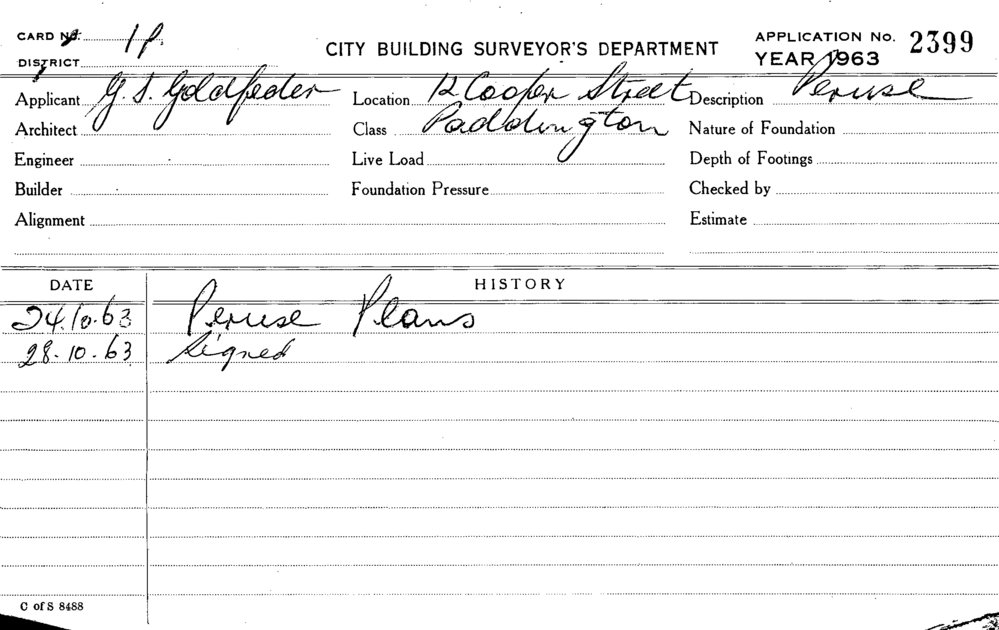 CARD No. 1 P.
CITY BUILDING SURVEYOR'S DEPARTMENT
APPLICATION No. 2399
DISTRICT
YEAR 1963
Applicant G. S. Goldfeder Location 12 Cooper Street Description Peruse
Architect Class Paddington Nature of Foundation
Engineer Live Load Depth of Footings
Builder Foundation Pressure Checked by
Alignment Estimate
DATE HISTORY
24.10.63 Peruse Plans
28.10.63 Signed
C of S 8488